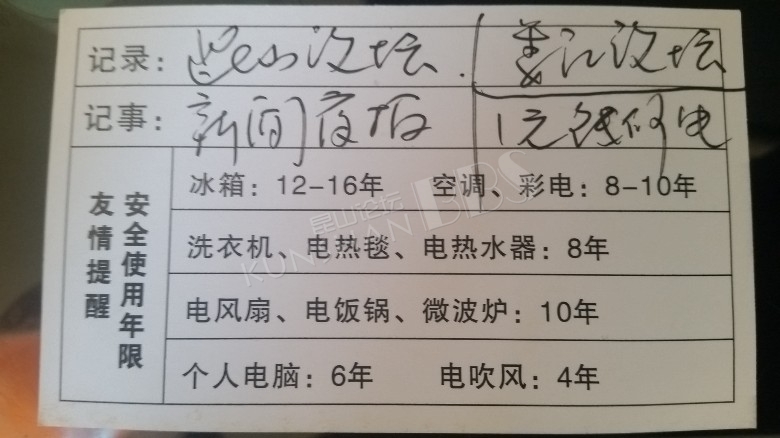 记录：昆山论坛.
娄江论坛
记事：新闻夜报
1元钱
冰箱：12-16年　空调、彩电：8-10年
安全使用年限
友情提醒
洗衣机、电热毯、电热水器：8年
电风扇、电饭锅、微波炉：10年
个人电脑：6年　电吹风：4年
昆山论坛
KUNSHAN BBS